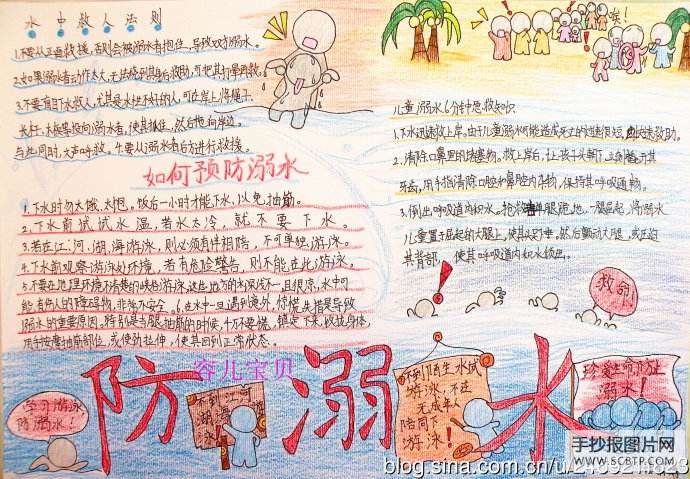 水中救人法则
1.不要从正面救援,否则会被溺水者抱住,导致双方溺水。
2.如果溺水者动作太大,无法绕到其身后救助,可把其打晕再救。
3.不要盲目下水救人,尤其是水性不好的人,可在岸上将绳子、
长杆、木板等投向溺水者,使其抓住,然后拖向岸边。
与此同时,大声呼救。4.要从溺水者后方进行救援。
如何预防溺水
1.下水时勿太饿、太饱。饭后一小时才能下水,以免抽筋。
2.下水前试试水温,若水太冷,就不要下水。
3.若在江、河、湖、海游泳,则必须有伴相陪,不可单独游泳。
4.下水前观察游泳处环境,若有危险警告,则不能在此游泳。
5.不要在地理环境不清楚的峡谷游泳。这些地方的水深浅不一,且很凉,水中可
能有伤人的障碍物,非常不安全。6.在水中一旦遇到意外,惊慌失措是导致
溺水的重要原因,特别是当腿抽筋的时候,千万不要慌,镇定下来,收拢身体,
用手按摩抽筋部位,或使劲拉伸,使其回到正常状态。
唉!
儿童溺水6分钟急救知识
1.下水迅速救上岸。由于儿童溺水可能造成死亡的过程很短,
2.清除口鼻里的堵塞物。救上岸后,让孩子头朝下,立刻撬开其
牙齿,用手指清除口腔和鼻腔内杂物,保持其呼吸通畅。
3.倒出呼吸道内积水。抢救者单腿跪地,一腿屈起,将溺水
儿童置于屈起的大腿上,使其头朝下,然后颤动大腿,或压迫
其背部,使其呼吸道内积水倾出。
救命!
防溺水
容儿宝贝
学习游泳
防溺水!
不到江河
湖海
游泳!
不到陌生水域
游泳,不在
无成年人
陪同下
游泳!
珍爱生命防止
溺水!
手抄报图片网
WWW.SCBTP.COM